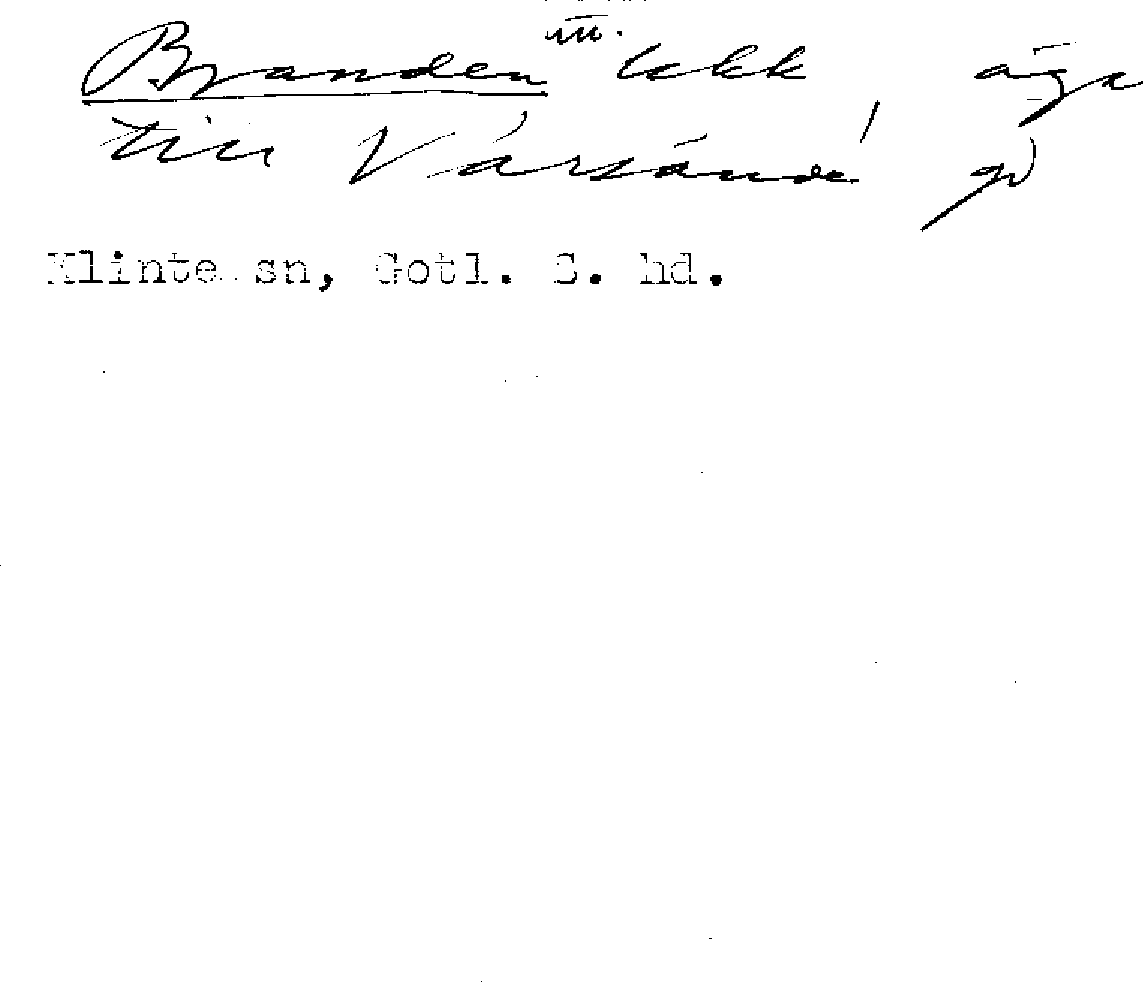 Branden m. lekk äga
till Värsände gd
Klinte sn, Gotl. S. hd.